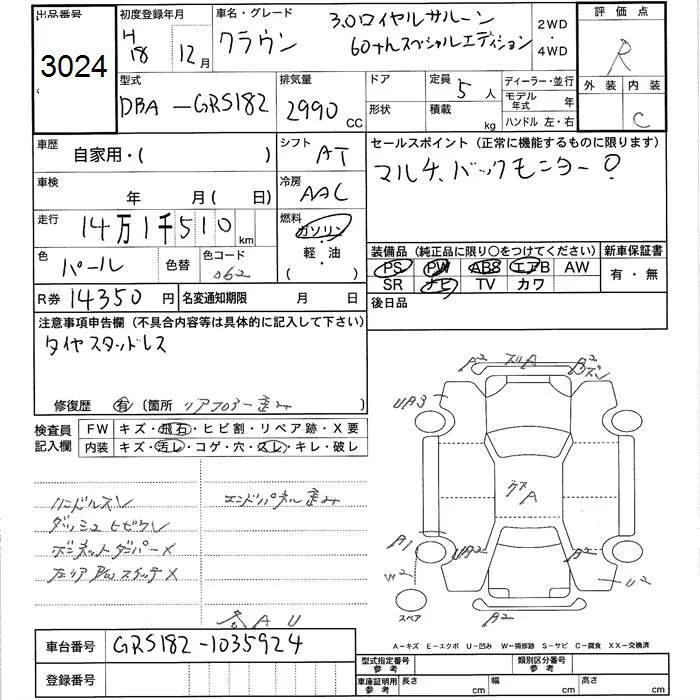 出品番号
3024
初度登録年月
H 18 12月
車名・グレード
クラウン
3.0ロイヤルサルーン
60thスペシャルエディション
2WD
・
4WD
評価点
R
外装 内装
C
型式
DBA-GRS182
排気量
2990 CC
ドア
形状
定員 5人
積載 kg
ディーラー・並行
モデル年式 年
ハンドル 左・右
車歴
自家用・( )
シフト
AT
セールスポイント (正常に機能するものに限ります)
マルチ、バックモニター
車検
年 月(日)
冷房
AAC
走行
14万1千510 km
燃料
ガソリン
・
軽・油
( )
色
パール
色替
色コード
062
装備品 (純正品に限り○をつけてください)
新車保証書
PS PW ABS エアB AW
SR ナビ TV カワ
有・無
R券 14350 円
名変通知期限 月 日
後日品
注意事項申告欄 (不具合内容等は具体的に記入して下さい)
タイヤスタッドレス
修復歴 有 (箇所 リアフロアー歪み )
検査員
記入欄
FW キズ・飛石・ヒビ割・リペア跡・X要
内装 キズ・汚レ・コゲ・穴・スレ・キレ・破レ
ハンドルスレ
ダッシュヒビワレ
ボンネットダンパーX
左リアP/WスイッチX
エンドパネル歪み
各AU
A2 A A2
UA3
A
A1 UA2 A2
W2 U2
スペア
A2
A-キズ E-エクボ U-凹み W-補修跡 S-サビ C-腐食 XX-交換済
車台番号 GRS182-1035924
登録番号
型式指定番号
参考
類別区分番号
参考
車庫証明用
参考
長さ cm 幅 cm 高さ cm